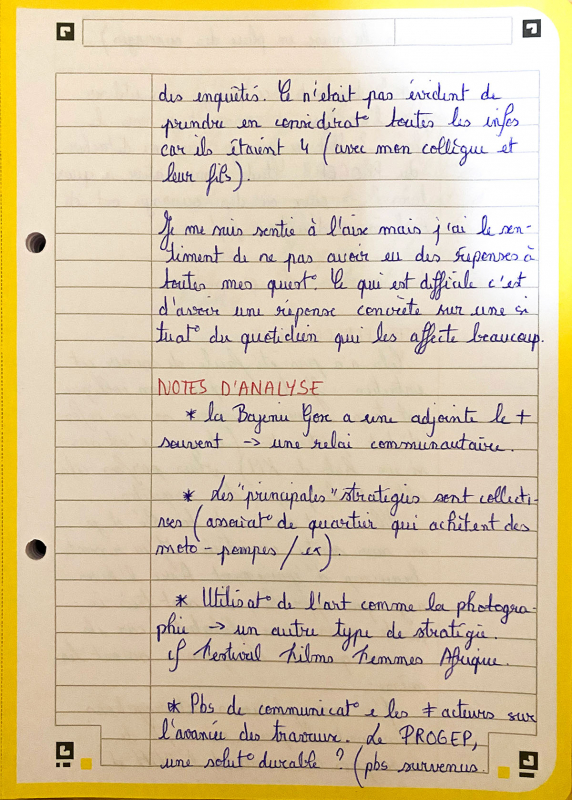 des enquêtés. Ce n'était pas évident de
prendre en considérat° toutes les infos
car ils étaient 4 (avec mon collègue et
leur fils).
Je me suis sentie à l'aise mais j'ai le sen-
timent de ne pas avoir eu des réponses à
toutes mes quest°. Ce qui est difficile c'est
d'avoir une réponse concrète sur une si
tuat° du quotidien qui les affecte beaucoup.
NOTES D'ANALYSE
* la Bajenu Gox a une adjointe le +
souvent → une relai communautaire.
* Les "principales" stratégies sont collecti-
ves (associat° de quartier qui achètent des
moto-pompes / ex).
* Utilisat° de l'art comme la photogra-
phie → un autre type de stratégie.
cf Festival Films Femmes Afrique.
* Pbs de communicat° e les ≠ acteurs sur
l'avancée des travaux. Le PROGEP,
une solut° durable ? (pbs survenus